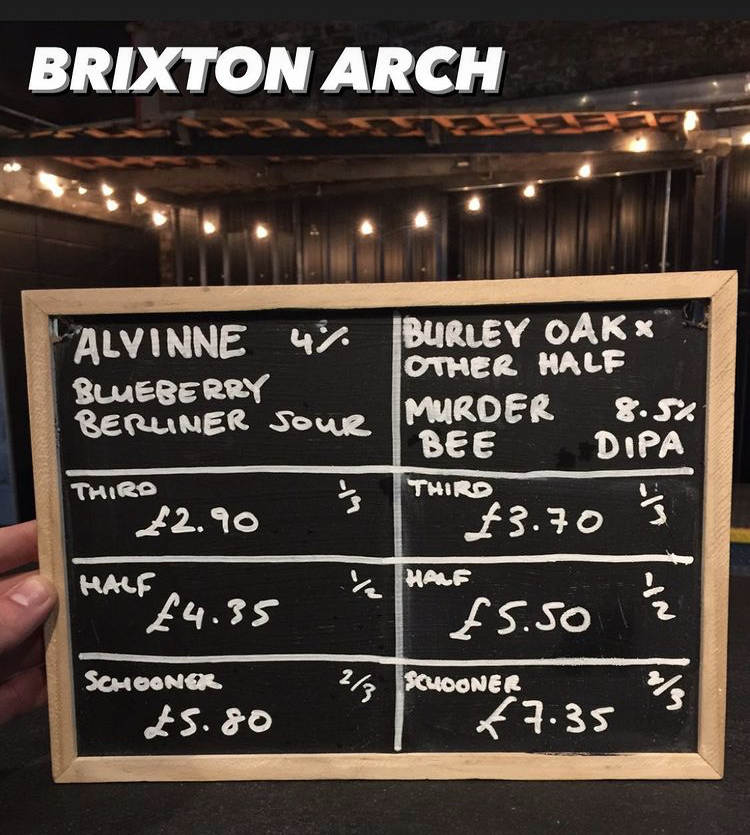 BRIXTON ARCH
ALVINNE 4%
BLUEBERRY
BERLINER SOUR
THIRD 1/3
£2.90
HALF 1/2
£4.35
SCHOONER 2/3
£5.80
BURLEY OAK x
OTHER HALF
MURDER 8.5%
BEE DIPA
THIRD 1/3
£3.70
HALF 1/2
£5.50
SCHOONER 2/3
£7.35